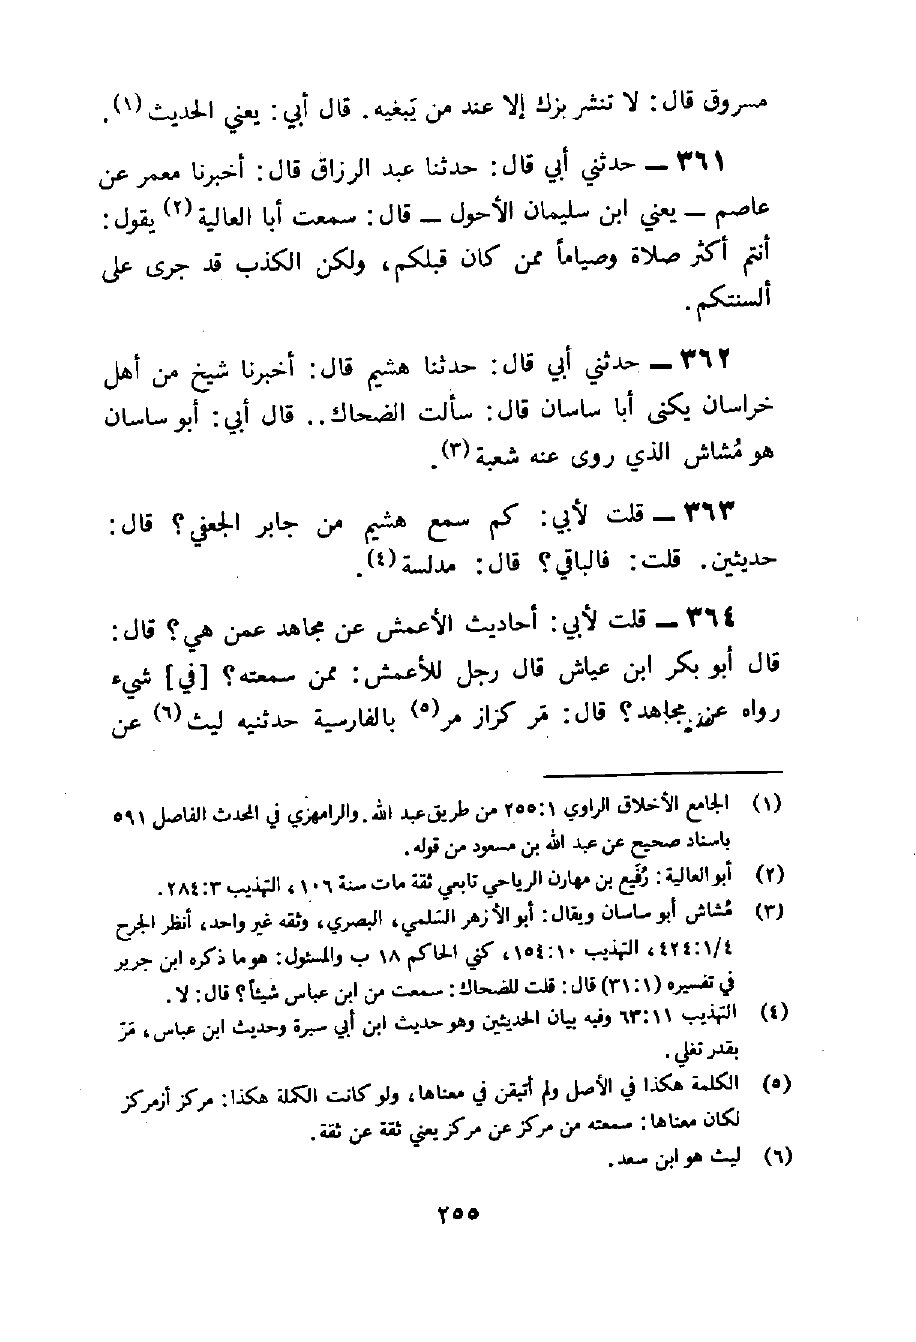 مسروق قال: لا تنشر بزك إلا عند من يَبغيه. قال أبي: يعني الحديث(١).
٣٦١ ــ حدثني أبي قال: حدثنا عبد الرزاق قال: أخبرنا معمر عن
عاصم ــ يعني ابن سليمان الأحول ــ قال: سمعت أبا العالية(٢) يقول:
أنتم أكثر صلاة وصياماً ممن كان قبلكم، ولكن الكذب قد جرى على
ألسنتكم.
٣٦٢ ــ حدثني أبي قال: حدثنا هشيم قال: أخبرنا شيخ من أهل
خراسان يكنى أبا ساسان قال: سألت الضحاك.. قال أبي: أبو ساسان
هو مُشاش الذي روى عنه شعبة(٣).
٣٦٣ ــ قلت لأبي: كم سمع هشيم من جابر الجعفي؟ قال:
حديثين. قلت: فالباقي؟ قال: مدلسة(٤).
٣٦٤ ــ قلت لأبي: أحاديث الأعمش عن مجاهد عمن هي؟ قال:
قال أبو بكر ابن عياش قال رجل للأعمش: ممن سمعته؟ [في] شيء
رواه عن مجاهد؟ قال: مَر كزاز مر(٥) بالفارسية حدثنيه ليث(٦) عن
(١) الجامع الأخلاق الراوي ٢٥٥:١ من طريق عبد الله. والرامهزي في المحدث الفاصل ٥٩١
باسناد صحيح عن عبد الله بن مسعود من قوله.
(٢) أبو العالية: رُفَيع بن مهارن الرياحي تابعي ثقة مات سنة ١٠٦، التهذيب ٢٨٤:٣.
(٣) مُشاش أبو ساسان ويقال: أبو الأزهر السَّلمي، البصري، وثقه غير واحد، أنظر الجرح
٤٢٤:١/٤، التهذيب ١٥٤:١٠، كني الحاكم ١٨ ب والمسئول: هو ما ذكره ابن جرير
في تفسيره (٣١:١) قال: قلت للضحاك: سمعت من ابن عباس شيئاً؟ قال: لا.
(٤) التهذيب ٦٣:١١ وفيه بيان الحديثين وهو حديث ابن أبي سبرة وحديث ابن عباس، مَرّ
بقدر تغلي.
(٥) الكلمة هكذا في الأصل ولم أتيقن في معناها، ولو كانت الكلمة هكذا: مركز أزمركز
لكان معناها: سمعته من مركز عن مركز يعني ثقة عن ثقة.
(٦) ليث هو ابن سعد.
٢٥٥